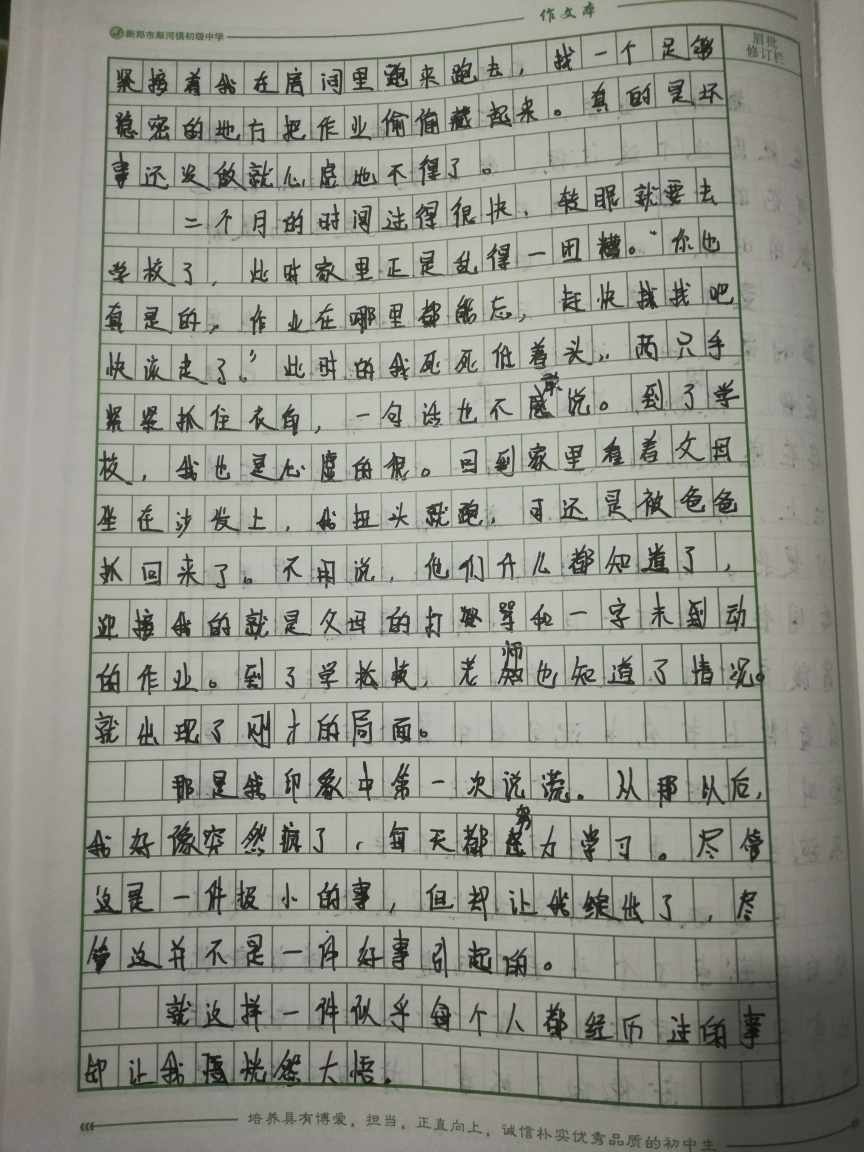 新郑市郑河镇初级中学
作文本
眉批
修订栏
紧接着我在房间里跑来跑去，找一个足够
隐密的地方把作业偷偷藏起来。真的是坏
事还没做就心虚地不得了。
二个月的时间过得很快，转眼就要去
学校了，此时家里正是乱得一团糟。“你也
真是的，作业在哪里都能忘，赶快找找吧
快该走了。”此时的我死死低着头，两只手
紧紧抓住衣角，一句话也不敢说。到了学
校，我也是心虚的很。回到家里看着父母
坐在沙发上，我扭头就跑，可还是被爸爸
抓回来了。不用说，他们什么都知道了，
迎接我的就是父母的打骂和一字未到动
的作业。到了学校，老师也知道了情况。
就出现了刚才的局面。
那是我印象中第一次说谎。从那以后，
我好像突然疯了，每天都努力学习。尽管
这是一件极小的事，但却让我绽出了，尽
管这并不是一件好事引起的。
就这样一件似乎每个人都经历过的事
却让我恍然大悟。
培养具有博爱，担当，正直向上，诚信朴实优秀品质的初中生